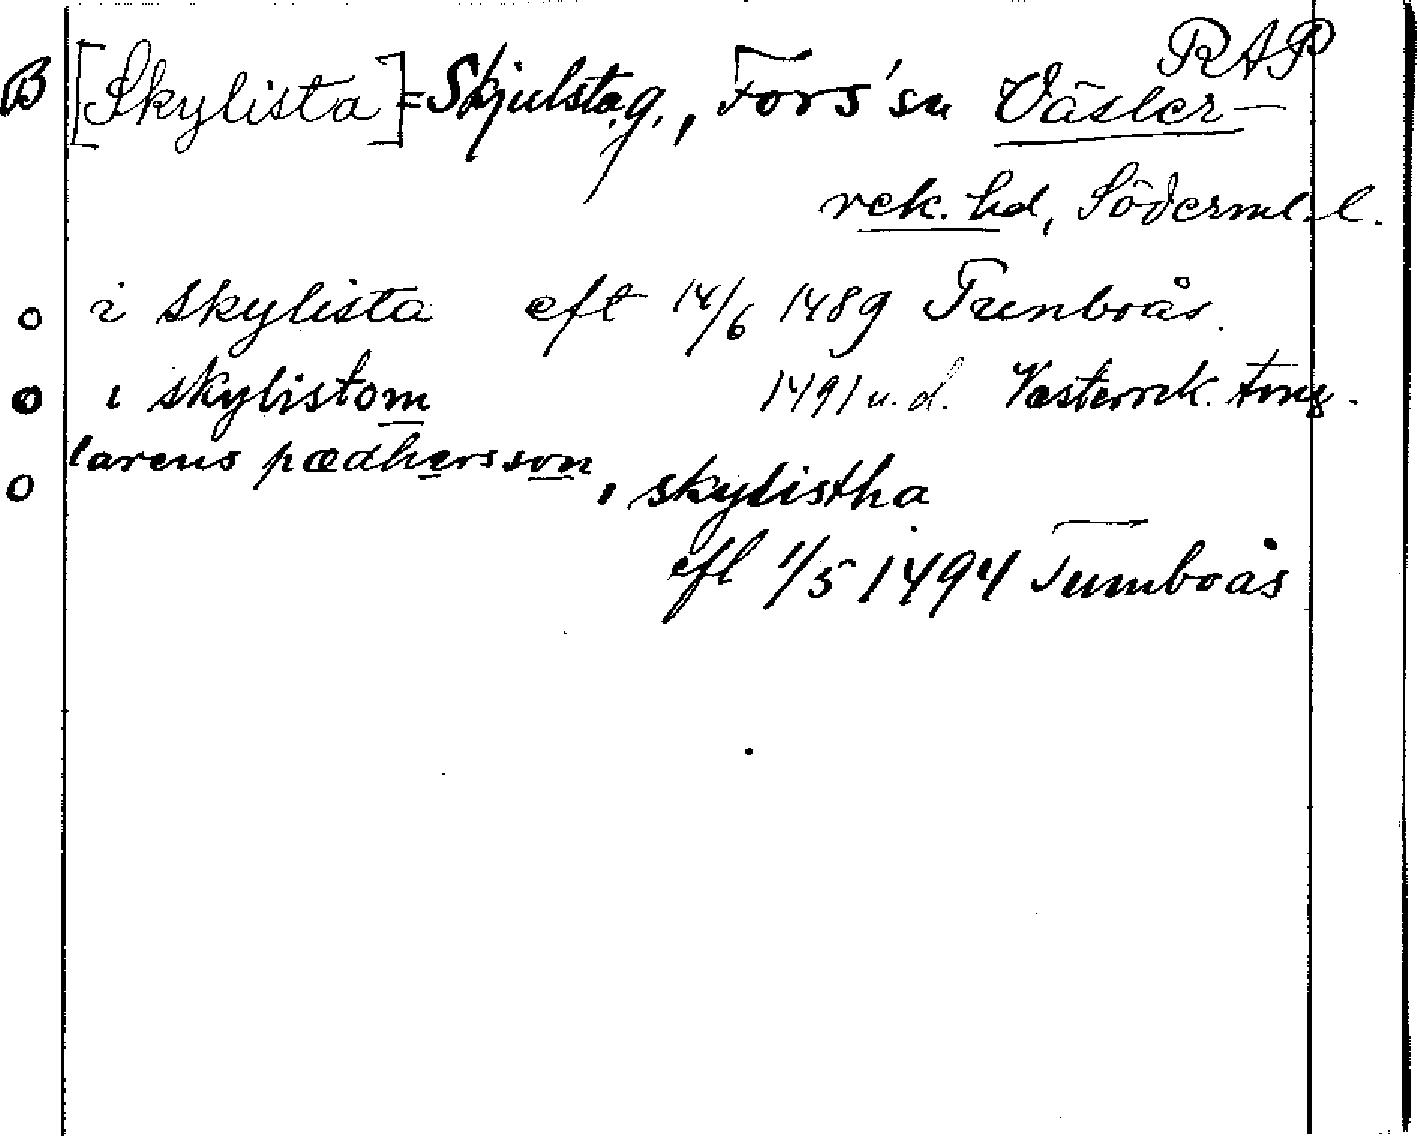 RAP
B [Skylista] = Skjulsta g., Fors' sn Väster-
rek. hd, Söderml. l.
o i skylista eft 14/6 1489 Tunboås.
o i skylistom 1491 u. d. Västerrek. ting.
o larens pædhersson, i skylistha
eft 1/5 1494 Tumboås